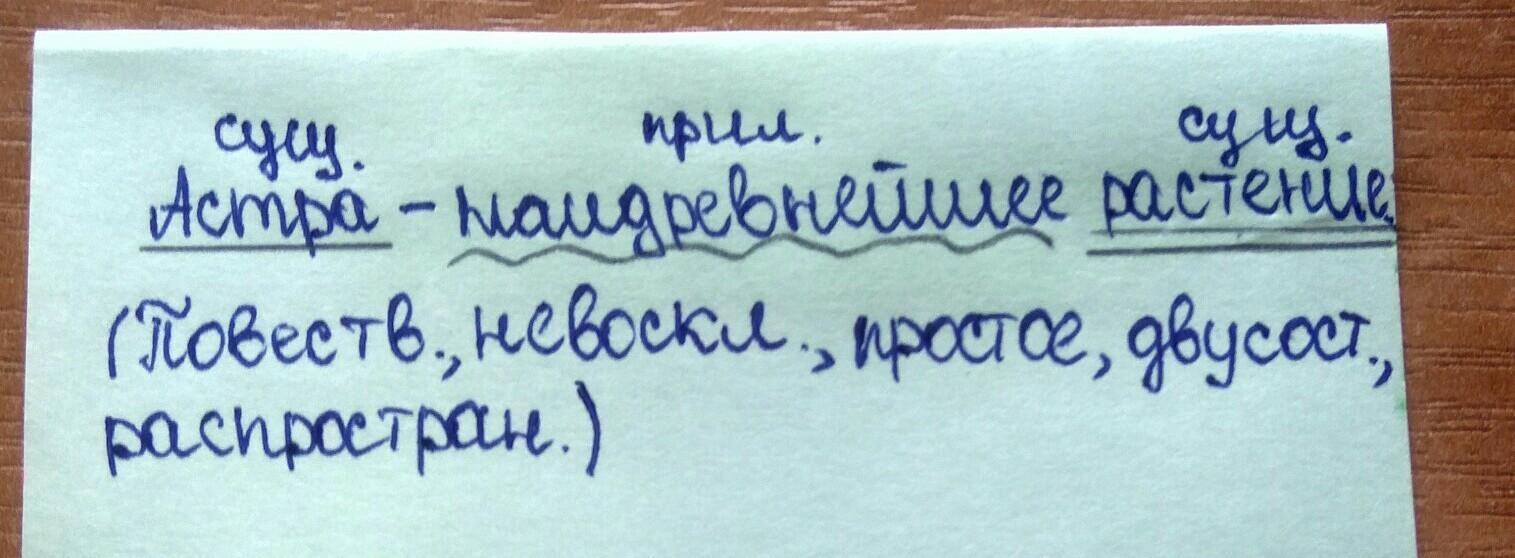 сущ. прил. сущ.
Астра - наидревнейшее растение.
(Повеств., невоскл., простое, двусост.,
распростран.)